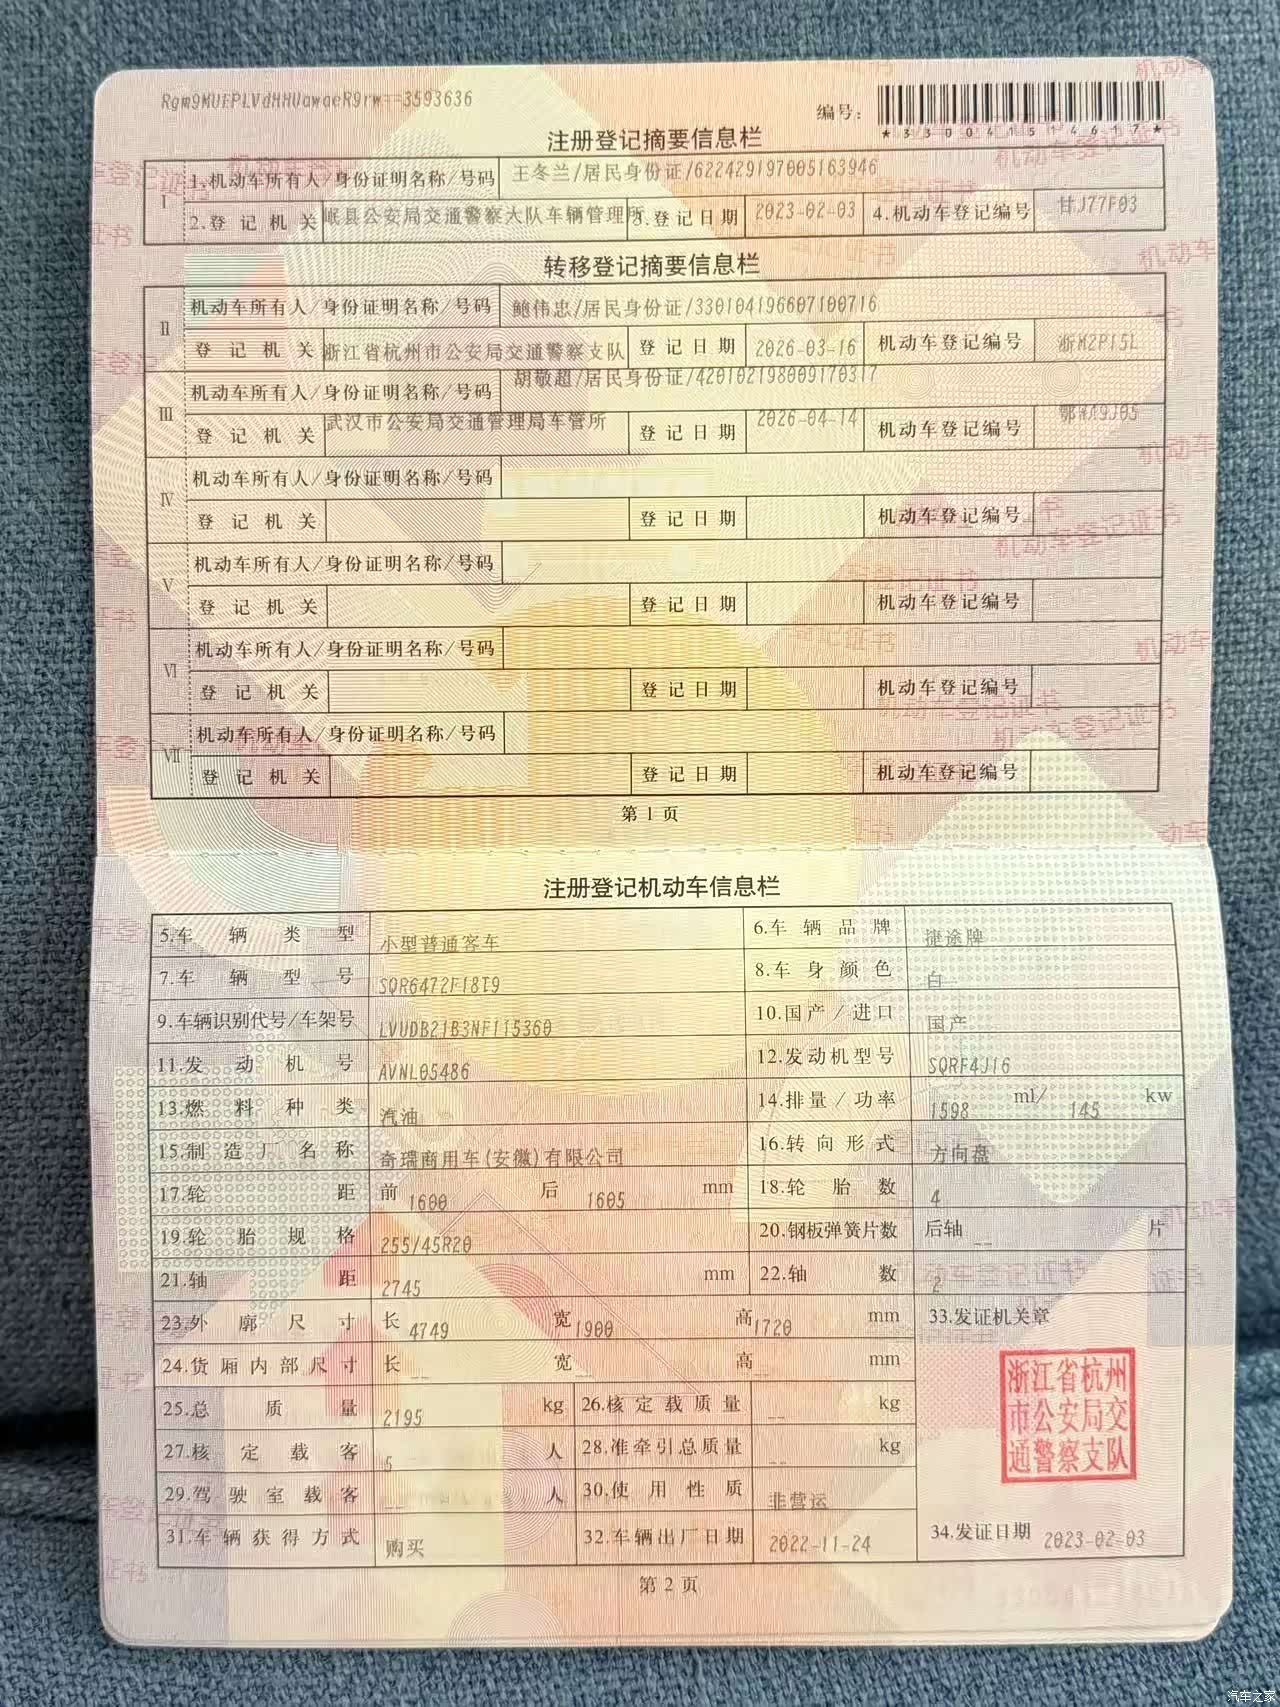 Rgm9MUEPLVdHHUawaeR9rw==3593636
编号：
*330041514617*
注册登记摘要信息栏
I 1.机动车所有人/身份证明名称/号码 王冬兰/居民身份证/622429197005163946
2.登记机关 岷县公安局交通警察大队车辆管理所 3.登记日期 2023-02-03 4.机动车登记编号 甘J77F03
转移登记摘要信息栏
II 机动车所有人/身份证明名称/号码 鲍伟忠/居民身份证/330104196607100716
登记机关 浙江省杭州市公安局交通警察支队 登记日期 2026-03-16 机动车登记编号 浙M2P15L
III 机动车所有人/身份证明名称/号码 胡敬超/居民身份证/420102198009170317
登记机关 武汉市公安局交通管理局车管所 登记日期 2026-04-14 机动车登记编号 鄂WA9J05
IV 机动车所有人/身份证明名称/号码
登记机关 登记日期 机动车登记编号
V 机动车所有人/身份证明名称/号码
登记机关 登记日期 机动车登记编号
VI 机动车所有人/身份证明名称/号码
登记机关 登记日期 机动车登记编号
VII 机动车所有人/身份证明名称/号码
登记机关 登记日期 机动车登记编号
第 1 页
注册登记机动车信息栏
5.车辆类型 小型普通客车 6.车辆品牌 捷途牌
7.车辆型号 SQR6472F18T9 8.车身颜色 白
9.车辆识别代号/车架号 LVUDB21B3NF115360 10.国产/进口 国产
11.发动机号 AVNL05486 12.发动机型号 SQRF4J16
13.燃料种类 汽油 14.排量/功率 1598 ml/ 145 kw
15.制造厂名称 奇瑞商用车(安徽)有限公司 16.转向形式 方向盘
17.轮距 前 1600 后 1605 mm 18.轮胎数 4
19.轮胎规格 255/45R20 20.钢板弹簧片数 后轴 -- 片
21.轴距 2745 mm 22.轴数 2
23.外廓尺寸 长 4749 宽 1900 高 1720 mm 33.发证机关章
24.货厢内部尺寸 长 -- 宽 -- 高 -- mm
浙江省杭州
市公安局交
通警察支队
25.总质量 2195 kg 26.核定载质量 -- kg
27.核定载客 5 人 28.准牵引总质量 -- kg
29.驾驶室载客 -- 人 30.使用性质 非营运
31.车辆获得方式 购买 32.车辆出厂日期 2022-11-24 34.发证日期 2023-02-03
第 2 页
汽车之家